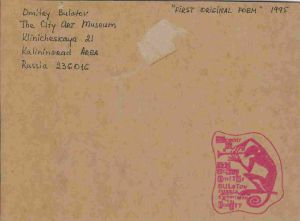 Dmitry Bulatov
The City Art Museum
Klinicheskaya 21
Kaliningrad AREA
Russia 236016
"FIRST ORIGINAL POEM" 1995
DMITRY
BULATOV
RUSSIA